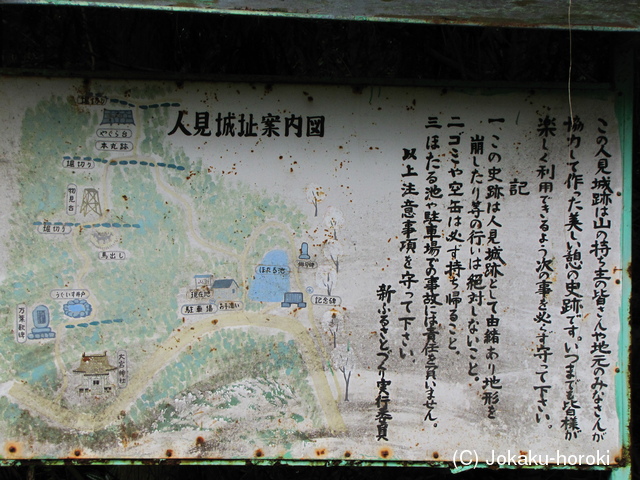 人見城址案内図
この人見城跡は山の持ち主の皆さんや地元のみなさんが
協力して作った美しい憩の史跡です。いつまでも皆様が
楽しく利用できるよう次の事を必ず守って下さい。
記
一 この史跡は人見城跡として由緒あり地形を
崩したり等の行いは絶対しないこと。
二 ゴミや空缶は必ず持ち帰ること。
三 ほたる池や駐車場での事故には責任を負いません。
以上注意事項を守って下さい。
新ふるさとづくり実行委員
堀切り
やぐら台
本丸跡
堀切り
物見台
堀切り
馬出し
うぐいす井戸
万葉歌碑
大宮神社
現在地
駐車場
お手洗い
ほたる池
記念碑
(C) Jokaku-horoki